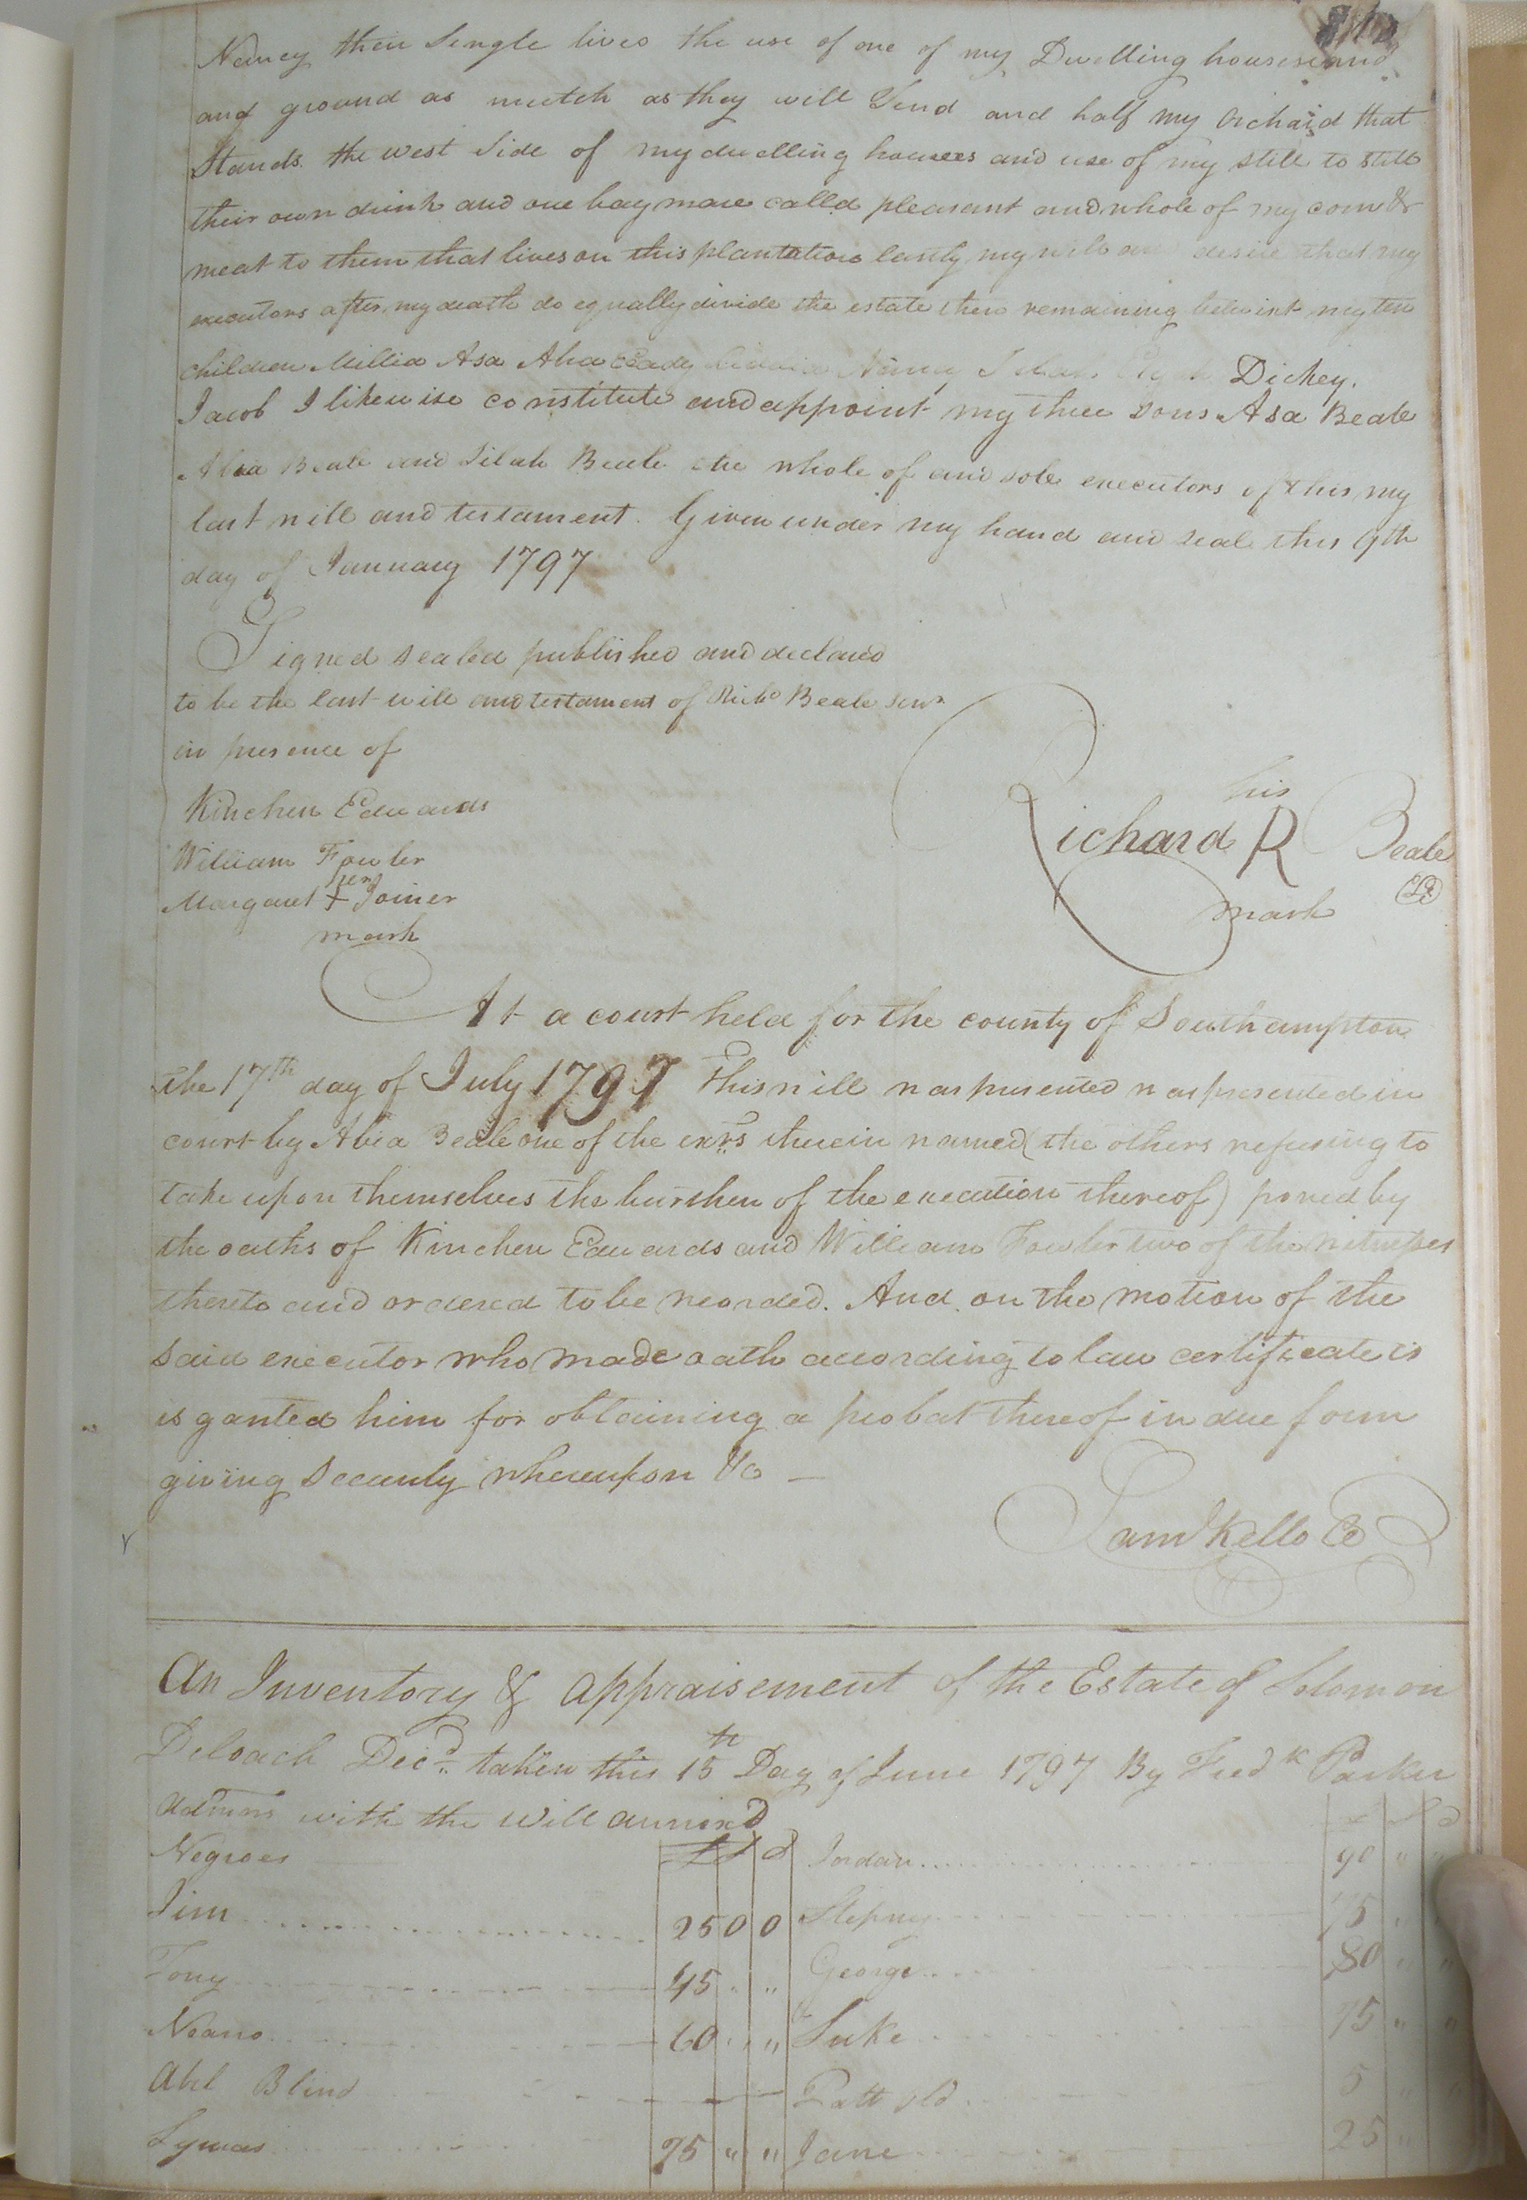 Nancy their Single lives the use of one of my Dwelling houses and
and ground as mutch as they will Tend and half my Orchaid that
Stands the west Side of my dwelling houses and use of my still to still
their own drink and one bay mare calld pleasant and whole of my corn &
meat to them that lives on this plantation lastly my will and desire that my
executors after my death do equally divide the estate then remaining betwixt my ten
children Millia Asa Abia Nancy Dickey.
Jacob I likewise constitute and appoint my three sons Asa Beale
Abia Beale and Silah Beale the whole of and sole executors of this my
last will and testament. Given under my hand and seal this 9th
day of January 1797
Signed sealed published and declared
to be the last will and testament of Richd Beale senr
in presence of
Kinchen Edwards
William Fowler
her
Margaret + Joiner
mark
his
Richard R Beale
mark
At a court held for the county of Southampton
the 17th day of July 1797 This will was presented was presented in
court by Abia Beale one of the exrs therein named (the others refusing to
take upon themselves the burthen of the execution thereof) proved by
the oaths of Kinchen Edwards and William Fowler two of the witnesses
thereto and ordered to be recorded. And on the motion of the
said executor who made oath according to law certificate is
is ganted him for obtaining a probat thereof in due form
giving Security whereupon &c —
Saml Kello
An Inventory & appraisement of the Estate of Solomon
Deloach Decd. taken this 15th Day of June 1797 By Fredk Parker
with the Will annixd
Negroes £ S d
Jordan 90 " "
Jim 25 0 0
Stepney 75 " "
Tony 45 " "
George 80 " "
60 " "
Luke 75 " "
Abel Blind — — —
Patt old 5 " "
75 " "
Jane 25 "